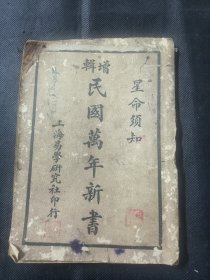 星命須知
增輯
民國萬年新書
上海易學研究社印行